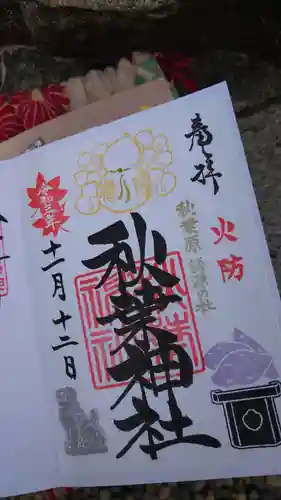 奉拝
火防
秋葉原
秋葉神社
令和三年
十一月十二日